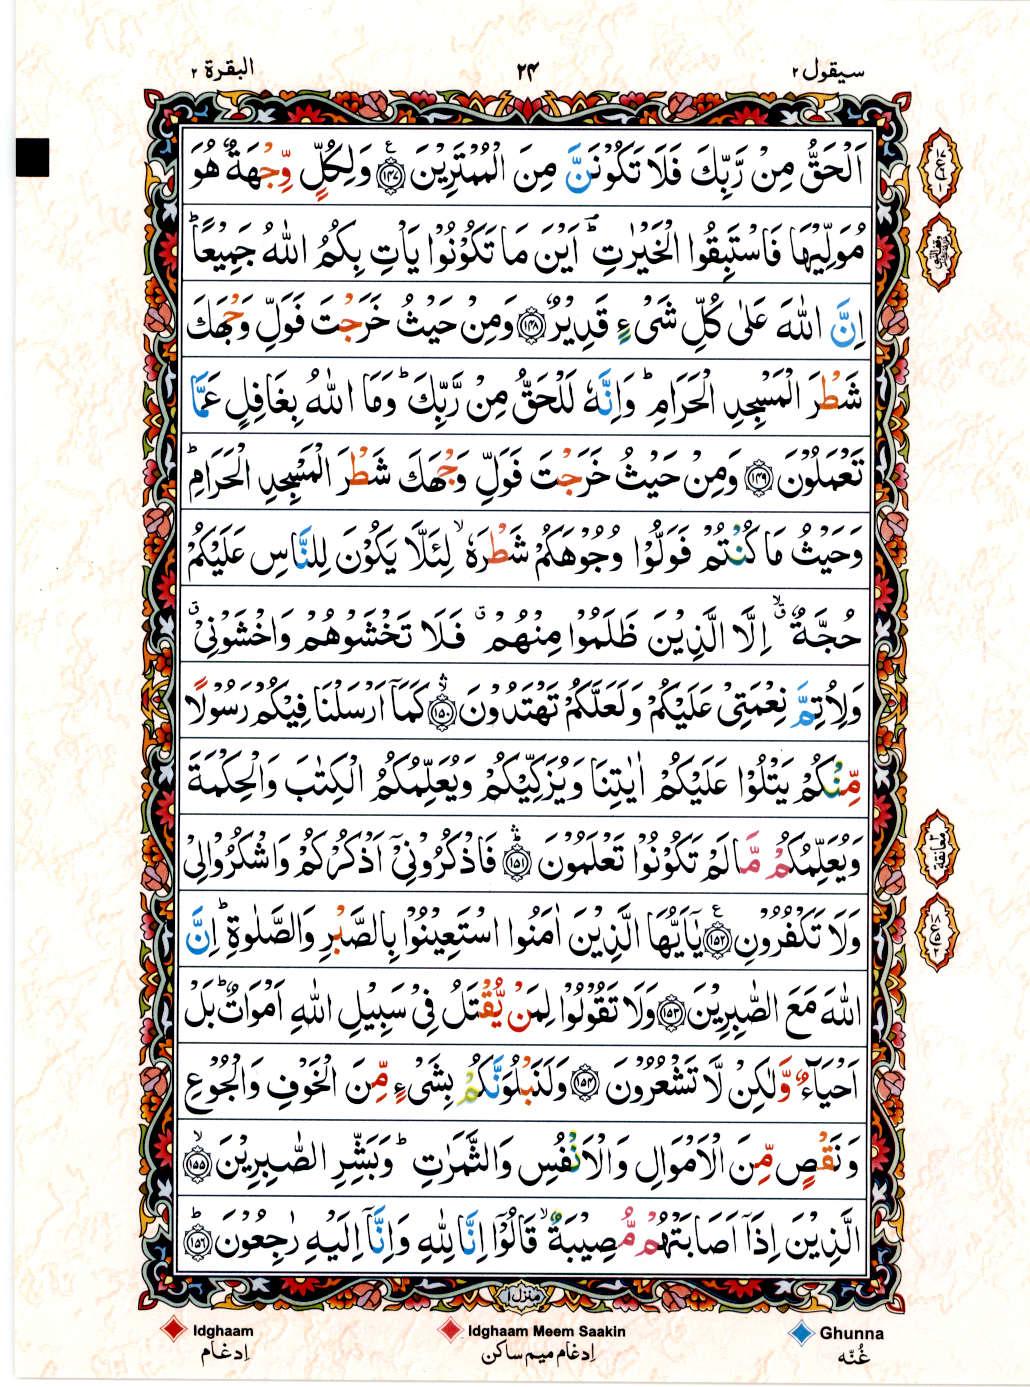 سيقول ٢
٢٤
البقرة ٢
اَلْحَقُّ مِنْ رَّبِّكَ فَلَا تَكُوْنَنَّ مِنَ الْمُمْتَرِيْنَ ﴿١٤٧﴾ وَلِكُلٍّ وِّجْهَةٌ هُوَ
مُوَلِّيْهَا فَاسْتَبِقُوا الْخَيْرٰتِ ؕ اَيْنَ مَا تَكُوْنُوْا يَاْتِ بِكُمُ اللّٰهُ جَمِيْعًا ؕ
اِنَّ اللّٰهَ عَلٰى كُلِّ شَىْءٍ قَدِيْرٌ ﴿١٤٨﴾ وَمِنْ حَيْثُ خَرَجْتَ فَوَلِّ وَجْهَكَ
شَطْرَ الْمَسْجِدِ الْحَرَامِ ؕ وَاِنَّهٗ لَلْحَقُّ مِنْ رَّبِّكَ ؕ وَمَا اللّٰهُ بِغَافِلٍ عَمَّا
تَعْمَلُوْنَ ﴿١٤٩﴾ وَمِنْ حَيْثُ خَرَجْتَ فَوَلِّ وَجْهَكَ شَطْرَ الْمَسْجِدِ الْحَرَامِ ؕ
وَحَيْثُ مَا كُنْتُمْ فَوَلُّوْا وُجُوْهَكُمْ شَطْرَهٗ ۙ لِئَلَّا يَكُوْنَ لِلنَّاسِ عَلَيْكُمْ
حُجَّةٌ ۙ ۗ اِلَّا الَّذِيْنَ ظَلَمُوْا مِنْهُمْ ۗ فَلَا تَخْشَوْهُمْ وَاخْشَوْنِىْ ۗ
وَلِاُتِمَّ نِعْمَتِىْ عَلَيْكُمْ وَلَعَلَّكُمْ تَهْتَدُوْنَ ﴿١٥٠﴾ كَمَاۤ اَرْسَلْنَا فِيْكُمْ رَسُوْلًا
مِّنْكُمْ يَتْلُوْا عَلَيْكُمْ اٰيٰتِنَا وَيُزَكِّيْكُمْ وَيُعَلِّمُكُمُ الْكِتٰبَ وَالْحِكْمَةَ
وَيُعَلِّمُكُمْ مَّا لَمْ تَكُوْنُوْا تَعْلَمُوْنَ ﴿١٥١﴾ فَاذْكُرُوْنِىْۤ اَذْكُرْكُمْ وَاشْكُرُوْا لِىْ
وَلَا تَكْفُرُوْنِ ﴿١٥٢﴾ يٰۤاَيُّهَا الَّذِيْنَ اٰمَنُوا اسْتَعِيْنُوْا بِالصَّبْرِ وَالصَّلٰوةِ ؕ اِنَّ
اللّٰهَ مَعَ الصّٰبِرِيْنَ ﴿١٥٣﴾ وَلَا تَقُوْلُوْا لِمَنْ يُّقْتَلُ فِىْ سَبِيْلِ اللّٰهِ اَمْوَاتٌ ؕ بَلْ
اَحْيَآءٌ وَّلٰكِنْ لَّا تَشْعُرُوْنَ ﴿١٥٤﴾ وَلَنَبْلُوَنَّكُمْ بِشَىْءٍ مِّنَ الْخَوْفِ وَالْجُوْعِ
وَنَقْصٍ مِّنَ الْاَمْوَالِ وَالْاَنْفُسِ وَالثَّمَرٰتِ ؕ وَبَشِّرِ الصّٰبِرِيْنَ ۙ ﴿١٥٥﴾
الَّذِيْنَ اِذَاۤ اَصَابَتْهُمْ مُّصِيْبَةٌ ۙ قَالُوْۤا اِنَّا لِلّٰهِ وَاِنَّاۤ اِلَيْهِ رٰجِعُوْنَ ؕ ﴿١٥٦﴾
معانقة
منزل ١
Ghunna
غُنّه
Idghaam Meem Saakin
اِدغام ميم ساكن
Idghaam
اِدغام